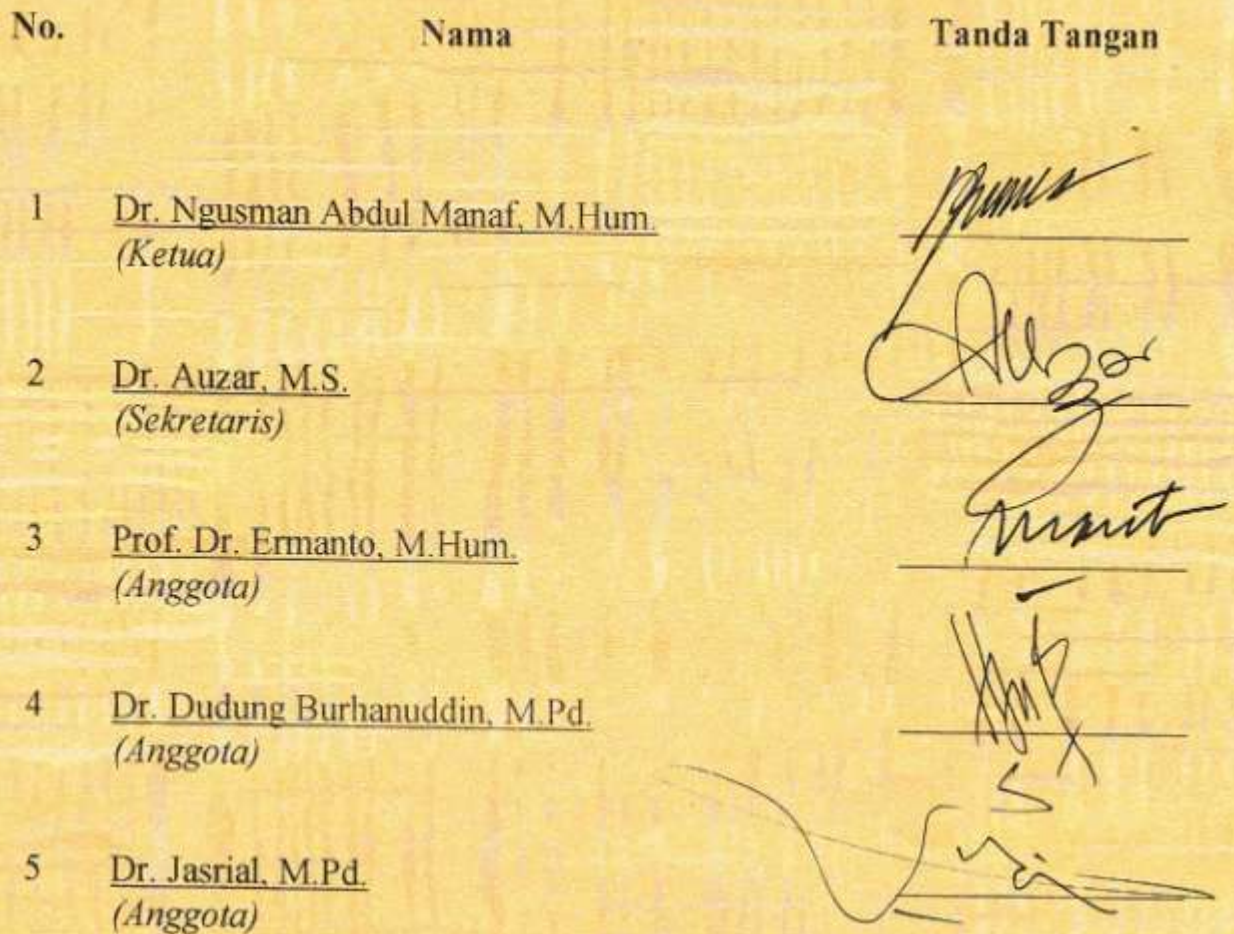 No. Nama Tanda Tangan
1 Dr. Ngusman Abdul Manaf, M.Hum.
(Ketua)
2 Dr. Auzar, M.S.
(Sekretaris)
Auzar
3 Prof. Dr. Ermanto, M.Hum.
(Anggota)
4 Dr. Dudung Burhanuddin, M.Pd.
(Anggota)
5 Dr. Jasrial, M.Pd.
(Anggota)